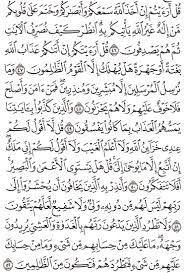 قُلْ أَرَءَيْتُمْ إِنْ أَخَذَ ٱللَّهُ سَمْعَكُمْ وَأَبْصَٰرَكُمْ وَخَتَمَ عَلَىٰ قُلُوبِكُم
مَّنْ إِلَٰهٌ غَيْرُ ٱللَّهِ يَأْتِيكُم بِهِ ٱنظُرْ كَيْفَ نُصَرِّفُ ٱلْءَايَٰتِ
ثُمَّ هُمْ يَصْدِفُونَ ٤٦ قُلْ أَرَءَيْتَكُمْ إِنْ أَتَىٰكُمْ عَذَابُ ٱللَّهِ
بَغْتَةً أَوْ جَهْرَةً هَلْ يُهْلَكُ إِلَّا ٱلْقَوْمُ ٱلظَّٰلِمُونَ ٤٧ وَمَا
نُرْسِلُ ٱلْمُرْسَلِينَ إِلَّا مُبَشِّرِينَ وَمُنذِرِينَ فَمَنْ ءَامَنَ وَأَصْلَحَ
فَلَا خَوْفٌ عَلَيْهِمْ وَلَا هُمْ يَحْزَنُونَ ٤٨ وَٱلَّذِينَ كَذَّبُوا۟ بِـَٔايَٰتِنَا
يَمَسُّهُمُ ٱلْعَذَابُ بِمَا كَانُوا۟ يَفْسُقُونَ ٤٩ قُل لَّآ أَقُولُ لَكُمْ
عِندِى خَزَآئِنُ ٱللَّهِ وَلَآ أَعْلَمُ ٱلْغَيْبَ وَلَآ أَقُولُ لَكُمْ إِنِّى مَلَكٌ
إِنْ أَتَّبِعُ إِلَّا مَا يُوحَىٰٓ إِلَىَّ قُلْ هَلْ يَسْتَوِى ٱلْأَعْمَىٰ وَٱلْبَصِيرُ
أَفَلَا تَتَفَكَّرُونَ ٥٠ وَأَنذِرْ بِهِ ٱلَّذِينَ يَخَافُونَ أَن يُحْشَرُوٓا۟ إِلَىٰ
رَبِّهِمْ لَيْسَ لَهُم مِّن دُونِهِۦ وَلِىٌّ وَلَا شَفِيعٌ لَّعَلَّهُمْ يَتَّقُونَ
٥١ وَلَا تَطْرُدِ ٱلَّذِينَ يَدْعُونَ رَبَّهُم بِٱلْغَدَوٰةِ وَٱلْعَشِىِّ يُرِيدُونَ
وَجْهَهُۥ مَا عَلَيْكَ مِنْ حِسَابِهِم مِّن شَىْءٍ وَمَا مِنْ حِسَابِكَ
عَلَيْهِم مِّن شَىْءٍ فَتَطْرُدَهُمْ فَتَكُونَ مِنَ ٱلظَّٰلِمِينَ ٥٢